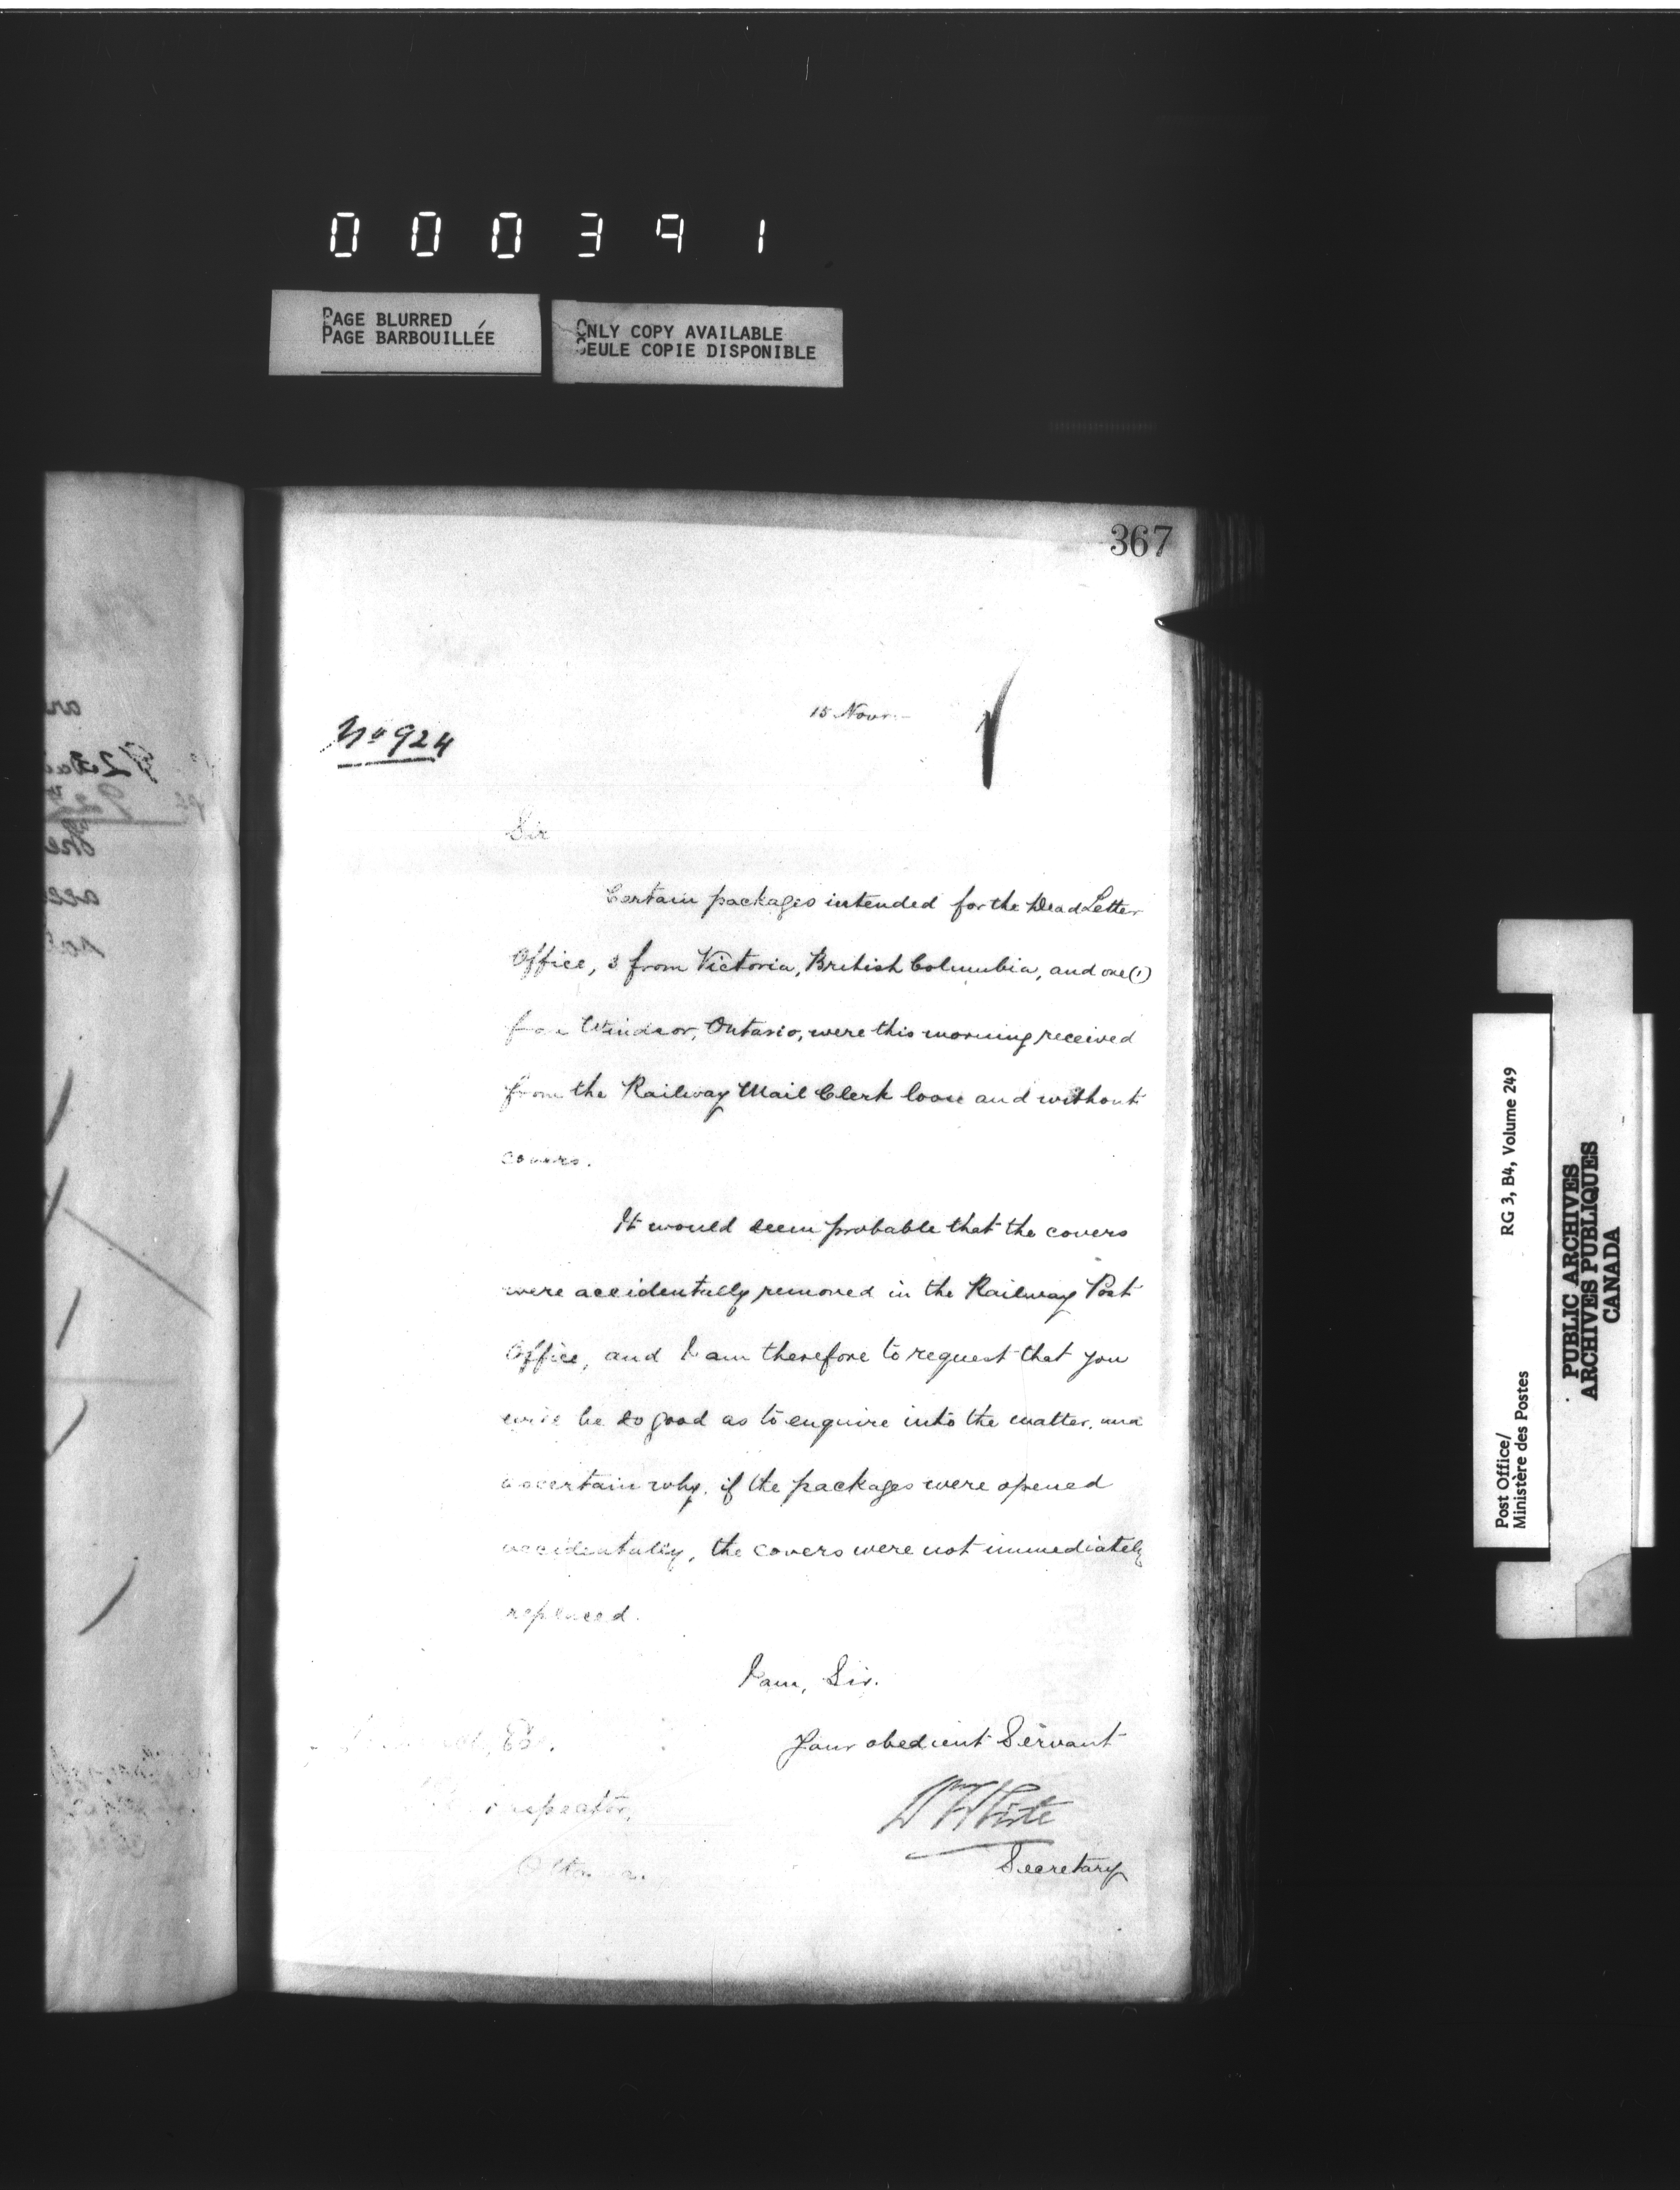 000391
PAGE BLURRED
PAGE BARBOUILLÉE
ONLY COPY AVAILABLE
SEULE COPIE DISPONIBLE
367
15 Novr.
No 924
Sir
Certain packages intended for the Dead Letter
Office, 3 from Victoria, British Columbia, and one (1)
from Windsor, Ontario, were this morning received
from the Railway Mail Clerk loose and without
covers.
It would seem probable that the covers
were accidentally removed in the Railway Post
Office, and I am therefore to request that you
will be so good as to enquire into the matter, and
ascertain why, if the packages were opened
accidentally, the covers were not immediately
replaced.
I am, Sir.
Your obedient Servant
W White
Secretary
Esq.
Inspector,
Ottawa.
Post Office/
Ministère des Postes
RG 3, B4, Volume 249
PUBLIC ARCHIVES
ARCHIVES PUBLIQUES
CANADA